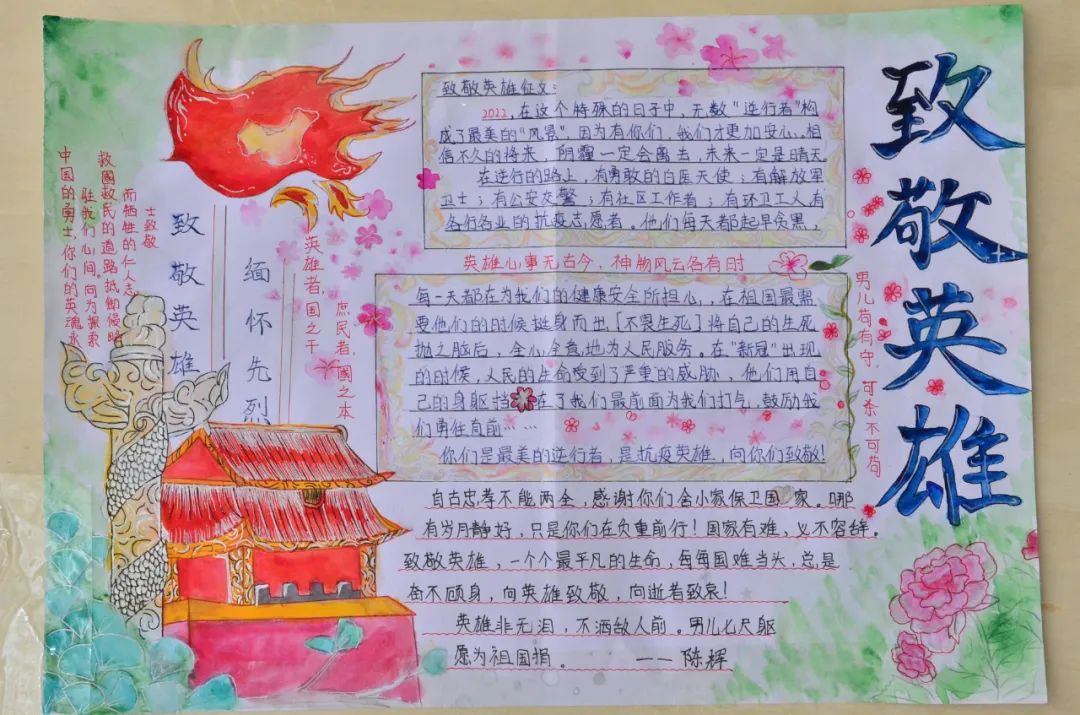 致敬英雄
致敬英雄征文：
2022，在这个特殊的日子中，无数“逆行者”构
成了最美的“风景”，因为有你们，我们才更加安心，相
信不久的将来，阴霾一定会离去，未来一定是晴天
在逆行的路上，有勇敢的白医天使；有解放军
卫士；有公安交警；有社区工作者；有环卫工人有
各行各业的抗疫志愿者。他们每天都起早贪黑，
英雄心事无古今，神物风云各有时
每一天都在为我们的健康安全所担心，在祖国最需
要他们的时候挺身而出[不畏生死]将自己的生死
抛之脑后，全心全意地为人民服务。在“新冠”出现
的时候，人民的生命受到了严重的威胁，他们用自
己的身躯挡在了我们最前面为我们打气，鼓励我
们勇往直前……
你们是最美的逆行者，是抗疫英雄，向你们致敬！
自古忠孝不能两全，感谢你们舍小家保卫国家。哪
有岁月静好，只是你们在负重前行！国家有难，义不容辞。
致敬英雄，一个个最平凡的生命，每每国难当头，总是
奋不顾身，向英雄致敬，向逝者致哀！
英雄非无泪，不洒敌人前。男儿七尺躯
愿为祖国捐。 ——陈辉
男儿苟有守，可杀不可苟
庶民者，國之本
英雄者，国之干
缅怀先烈
致敬英雄
士致敬
而牺牲的仁人志
救國救民的道路抵御侵略
驻我们心间。向为探索
中国的勇士，你们的英魂永